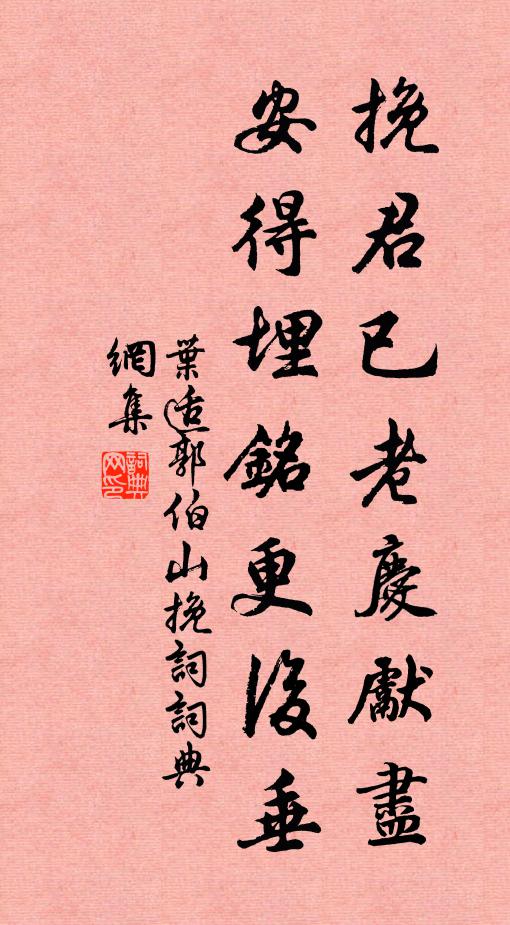 挽君已老慶獻盡
安得埋銘更後垂
葉适郭伯山挽詞詞典
網集
詞典網印